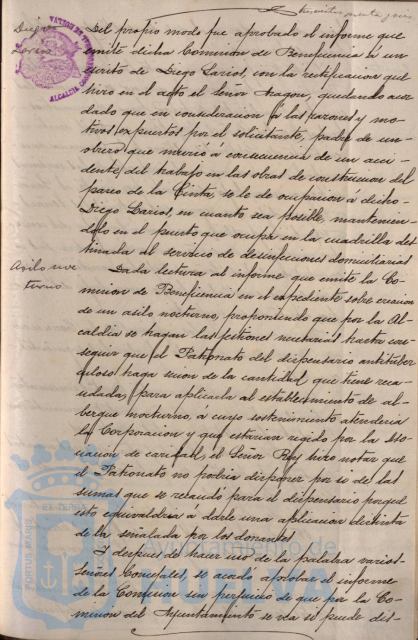 Diego Larios
Del propio modo fue aprobado el informe que
emite dicha Comision de Beneficencia á un
escrito de Diego Larios, con la rectificacion que
hizo en el acto el Señor Aragon, quedando acor
dado que en consideracion á las razones y mo
tivos expuestos por el solicitante, padre de un
obrero que murió á consecuencia de un acci
dente del trabajo en las obras de construccion del
paseo de la Cinta, se le de ocupacion á dicho
Diego Larios, en cuanto sea posible, mantenien
dolo en el puesto que ocupa en la cuadrilla des
tinada al servicio de desinfecciones domiciliarias
Asilo noc
turno
Dada lectura al informe que emite la Co
mision de Beneficencia en el expediente sobre creacion
de un asilo nocturno, proponiendo que por la Al
caldia se hagan las gestiones necesarias hasta con
seguir que el Patronato del dispensario antituber
culoso haga cesion de la cantidad que tiene reca
udada, para aplicarla al establecimiento de al
bergue nocturno, á cuyo sostenimiento atenderia
la Corporacion y que estarian regido por la Aso
ciacion de caridad, el Señor Rey hizo notar que
el Patronato no podia disponer por si de las
sumas que se recaudo para el dispensario porque
esto equivaldria á darle una aplicacion distinta
de la señalada por los donantes
Y despues de hacer uso de la palabra varios
Señores Concejales, se acordó aprobar el informe
de la Comision sin perjuicio de que por la Co
mision del Ayuntamiento se vea si puede des-
PORTUS MARIS
ET TERRE
Ayuntamiento de